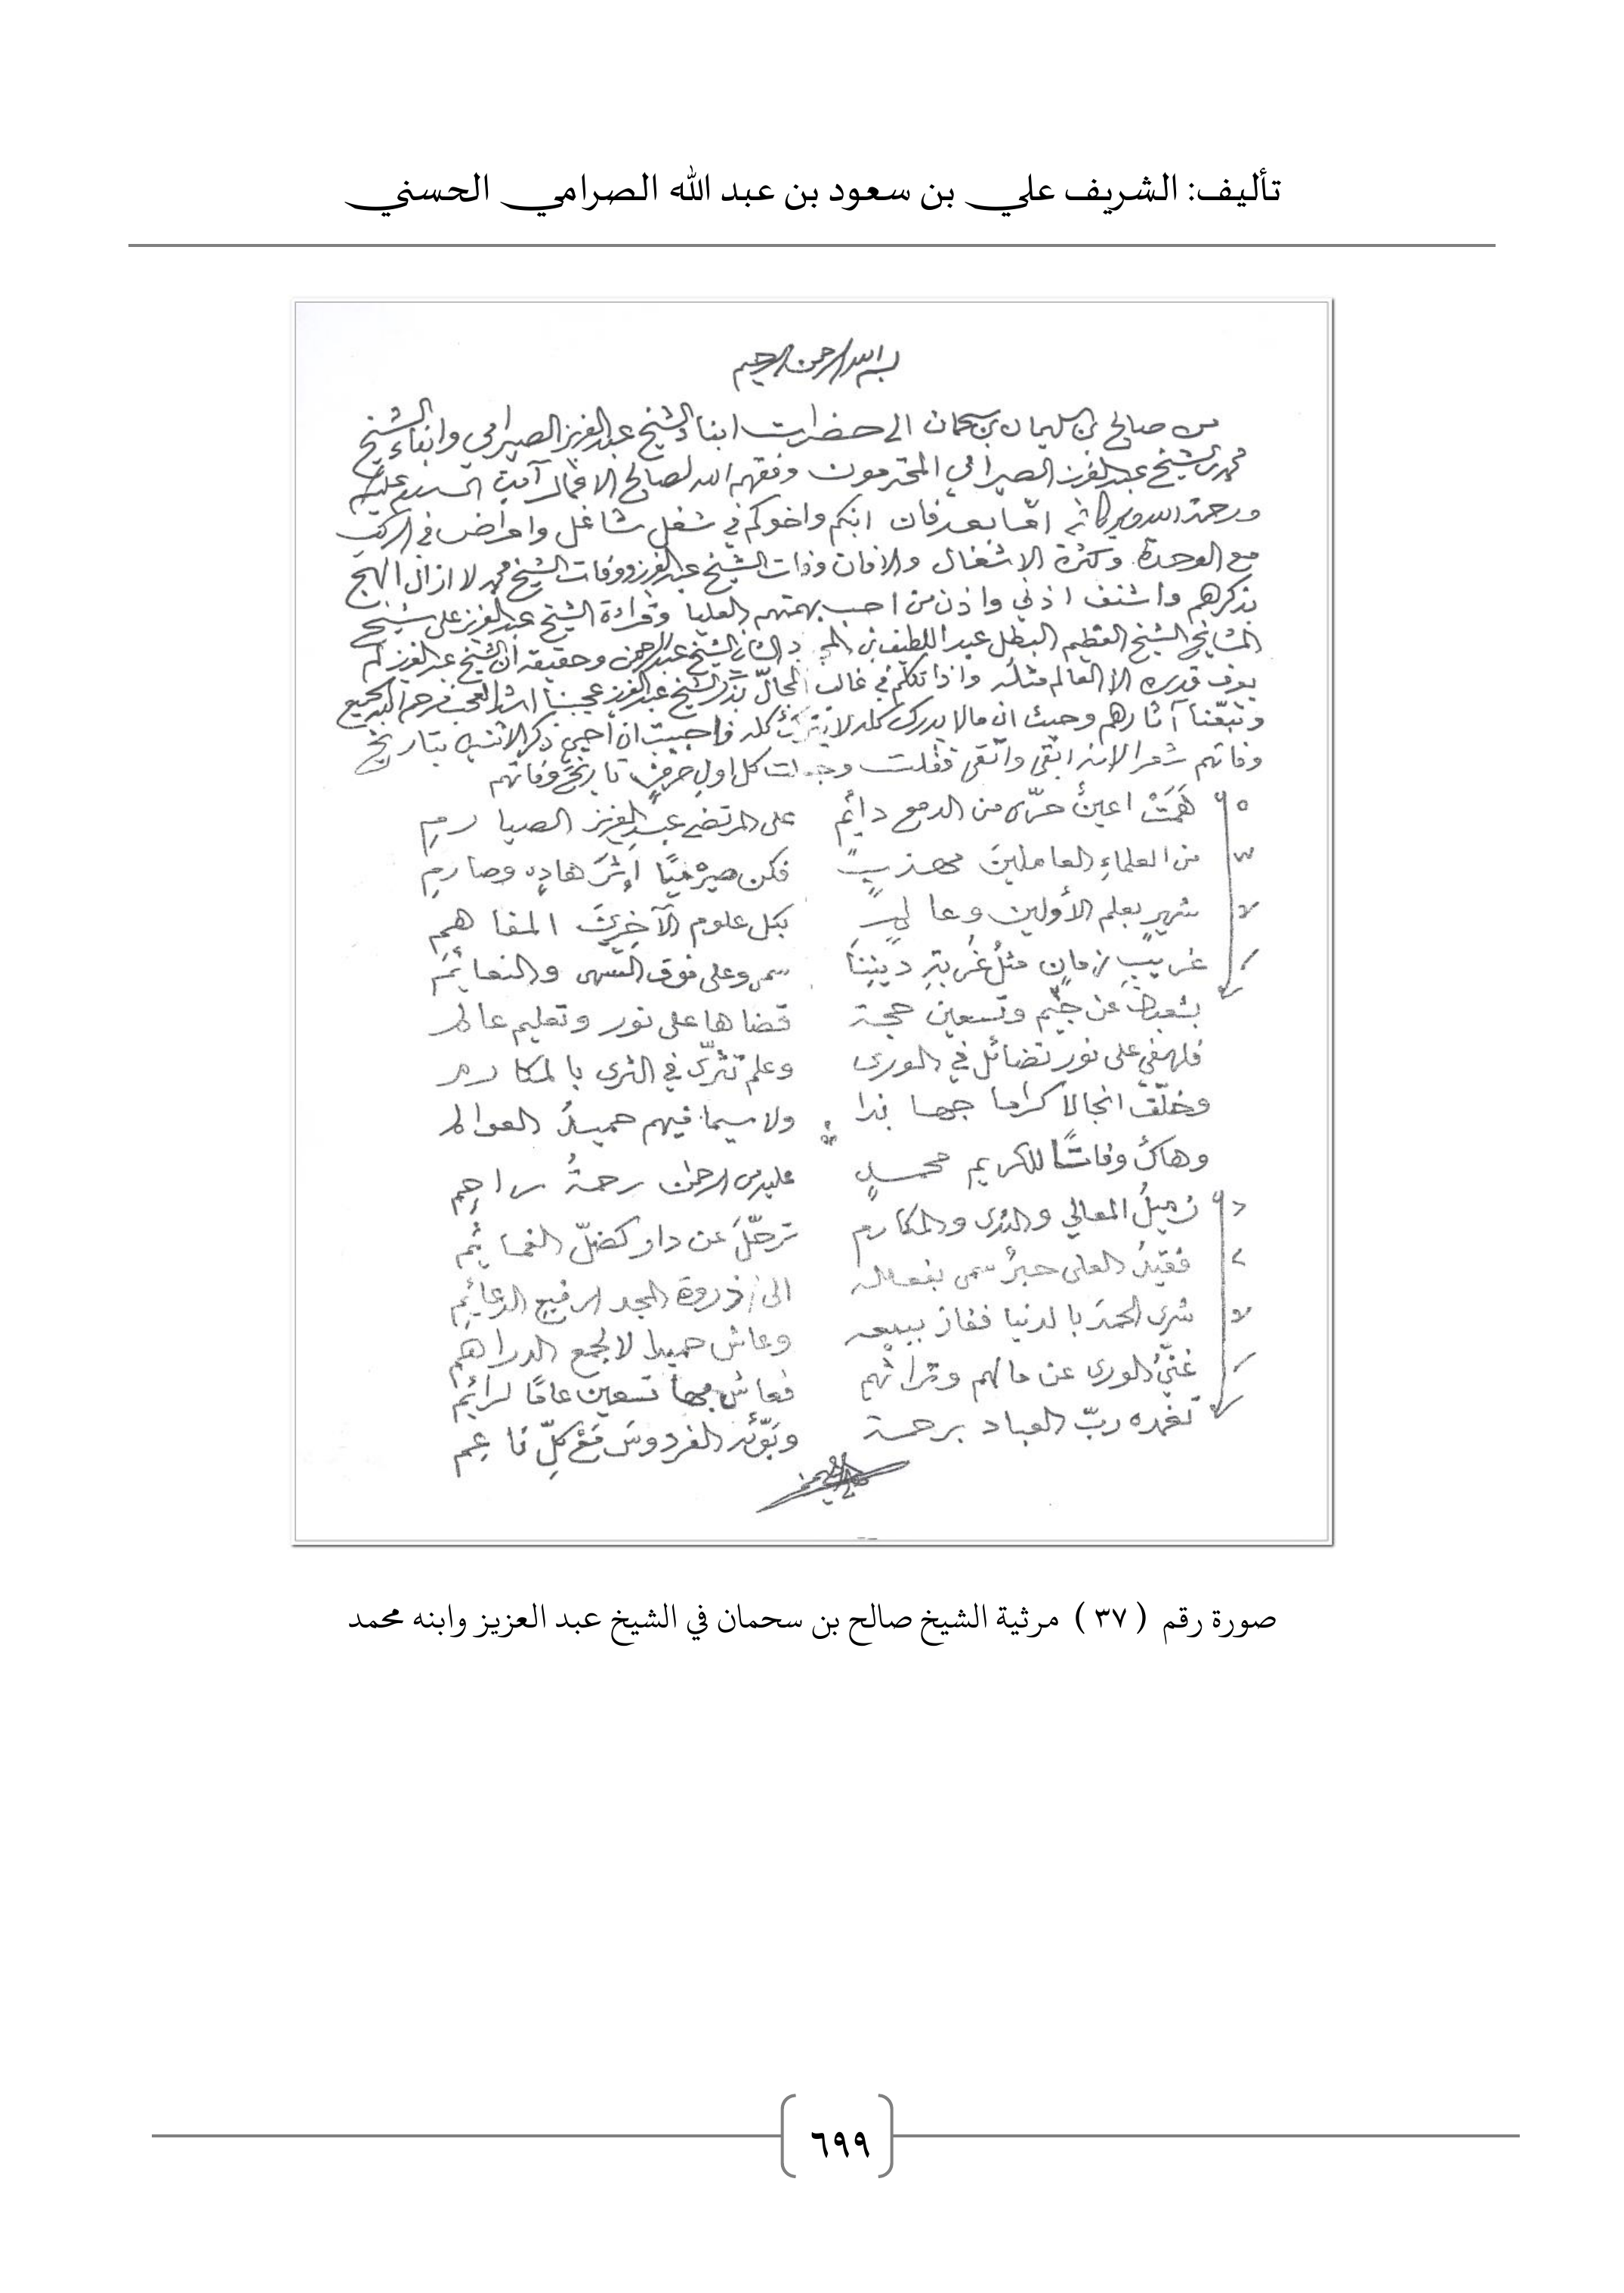 تأليف: الشريف علي بن سعود بن عبد الله الصرامي الحسني
بسم الله الرحمن الرحيم
من صالح بن سليمان بن سحمان الى حضرات ابناء الشيخ عبدالعزيز الصيرامي وابناء الشيخ
محمد بن الشيخ عبدالعزيز الصيرامي المحترمون وفقهم الله لصالح الاعمال آمين السلام عليكم
ورحمة الله وبركاته امّا بعد فان ابنكم واخوكم في شغل شاغل وامراض في الركب
مع الوحدة وكثرة الاشغال والافان وفات الشيخ عبدالعزيز ووفات الشيخ محمد لا ازال الهج
بذكرهم واشنف اذني واذن من احب بهمتهم العليا وقراءة الشيخ عبدالعزيز على شيخ
المشايخ الشيخ العظيم البطل عبداللطيف بن الشيخ عبدالرحمن وحقيقه أن الشيخ عبدالعزيز لم
يعرف قدره الا العالم مثله واذا تكلم في غالب المجال عبدالعزيز عجبنا اشد العجب فرحم الله الجميع
وتبعنا آثارهم وحيث ان مالا يدرك كله لا يترك كله فاجبت ان أحيي ذكر الاثنين بتاريخ
وفاتهم شعرا لانه ابقى وأنقى فقلت وجعلت كل اول حرف تاريخ وفاتهم
هَمَتْ اعينٌ حرّى من الدمع دائم على المرتضى عبدالعزيز الصيا رم
من العلماءِ العاملينَ مهذبٍ فكن صيرميًا إثرَ هادٍ وصارمِ
شهيرٍ بعلم الأولين وعالمٍ بكل علوم الآخِرينَ المفاهم
غريبِ زمانٍ مثلُ غُربةِ ديننا سمى وعلى فوق السهى والنعائم
وتسعين حجة قضاها على نور وتعليم عالم
فلهفي على نور تضائل في الورى وعلم تثرّى في الثرى بالمكارم
وخلّف انجالاً كراما جهابذا ولاسيما فيهم حميدُ العوالم
وهاك وفاتًا للكريم محمدٍ عليه من الرحمن رحمةُ راحِم
زميلُ المعالي والندى والمكارم ترحّلَ عن دار كضلّ الغمائم
فقيدُ العلى حبرٌ سمى بفعاله الى ذروة المجد الرفيع الدعائم
شرى الحمدَ بالدنيا ففاز ببيعه وعاش حميدا لا لجمع الدراهم
غنيُّ الورى عن مالهم وتراثهم فعاش بها تسعين عامًا لرائم
تغمده ربّ العباد برحمة وبوّئه الفردوسَ مَعْ كلِّ ناعِم
صورة رقم ( ٣٧ ) مرثية الشيخ صالح بن سحمان في الشيخ عبد العزيز وابنه محمد
٦٩٩